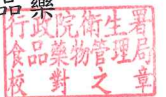 品藥
行政院衛生署
食品藥物管理局
校對之章